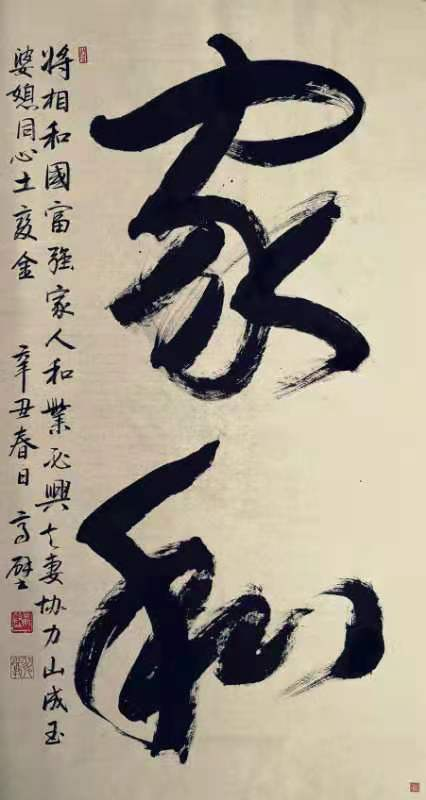 家和
將相和國富强家人和業必興夫妻协力山成玉
婆媳同心土变金 辛丑春日 高壁